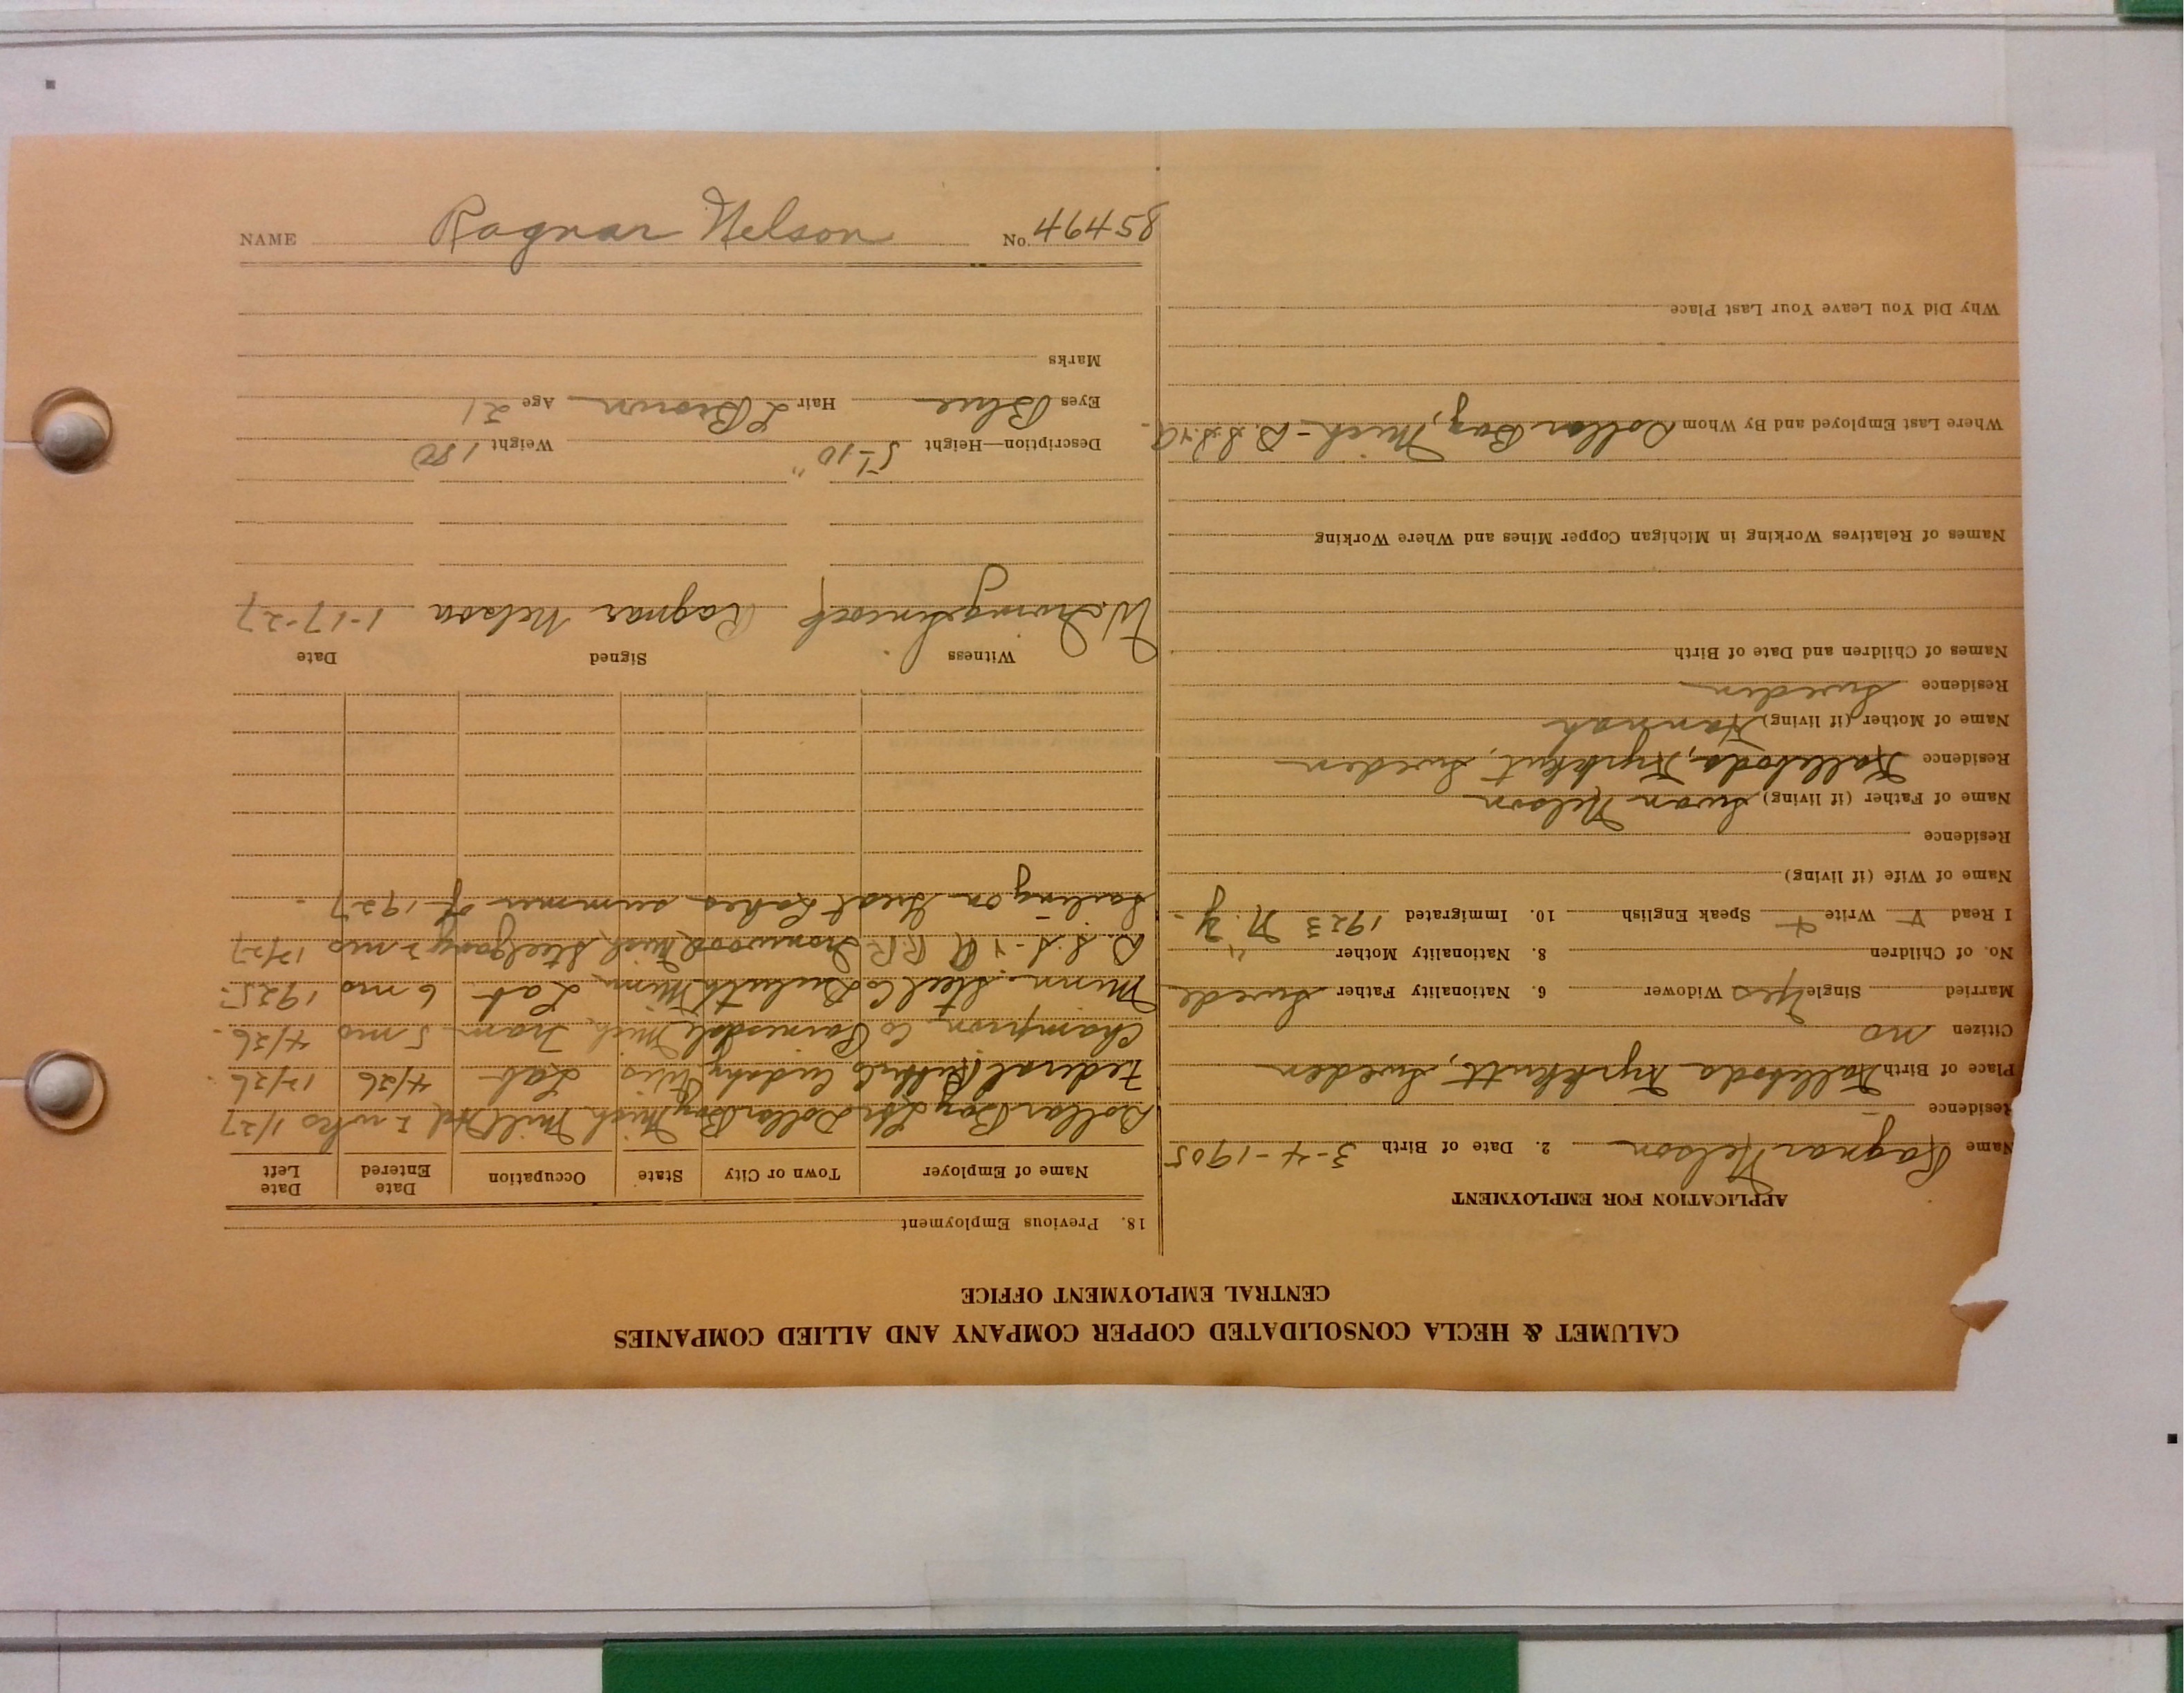 CALUMET & HECLA CONSOLIDATED COPPER COMPANY AND ALLIED COMPANIES
CENTRAL EMPLOYMENT OFFICE
APPLICATION FOR EMPLOYMENT
Name Ragnar Nelson 2. Date of Birth 3-4-1905
Residence
Place of Birth Kalleboda Kyrkhutt, Sweden
Citizen no
Married Single yes Widower 6. Nationality Father Swede
No. of Children 8. Nationality Mother "
I Read Write Speak English 10. Immigrated 1923 N.Y.
Name of Wife (if living)
Residence
Name of Father (if living) Swan Nelson
Residence Kalleboda, Kyrkhut, Sweden
Name of Mother (if living) Hannah
Residence Sweden
Names of Children and Date of Birth
Names of Relatives Working in Michigan Copper Mines and Where Working
Where Last Employed and By Whom Dollar Bay, Mich - D.S.S.&A.
Why Did You Leave Your Last Place
18. Previous Employment
Name of Employer Town or City State Occupation Date Entered Date Left
Dollar Bay Dollar Bay Mich Mill Hd 2 wks 1/27
Federal Rubber Co Cudahy Wis Lab 4/26 12/26
Champion Co Painesdale Mich Tram 5 mo 4/26
Minn. Steel Co Duluth Minn Lab 6 mo 1925
D.S.S.&A R.R. Ironwood Mich Steel gang 2 mo 12/27
Sailing on Great Lakes summer of 1927
Witness Signed Date
Ragnar Nelson 1-17-27
Description—Height 5-10" Weight 180
Eyes Blue Hair L Brown Age 21
Marks
NAME Ragnar Nelson No. 46458